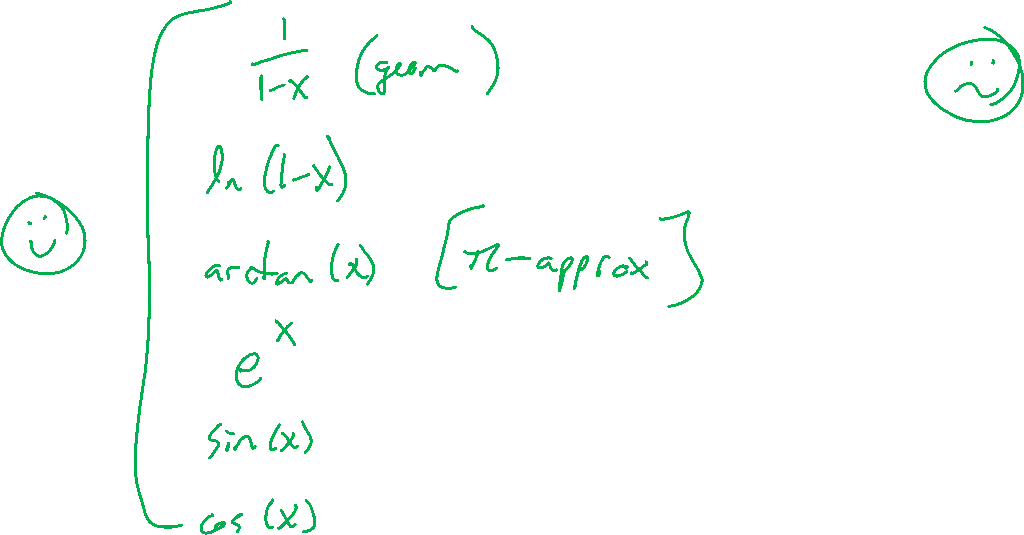 1/(1-x) (geom)
ln (1-x)
arctan (x) [π-approx]
e^x
sin (x)
cos (x)